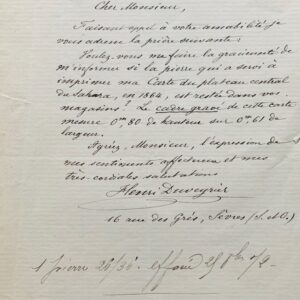 Cher Monsieur,
Faisant appel à votre amabilité je
vous adresse la prière suivante :
Voulez-vous me faire la gracieuseté de
m'informer si la pierre qui a servi à
imprimer ma Carte du plateau central
du Sahara, en 1864, est restée dans vos
magasins ? Le cadre gravé de cette carte
mesure 0m,80 de hauteur sur 0m,61 de
largeur.
Agréez, Monsieur, l'expression de
mes sentiments affectueux et mes
très-cordiales salutations
Henri Duveyrier
16 rue des Grès, Sèvres (S.-&O.)
1 pierre 28/38 effacé 25 8bre